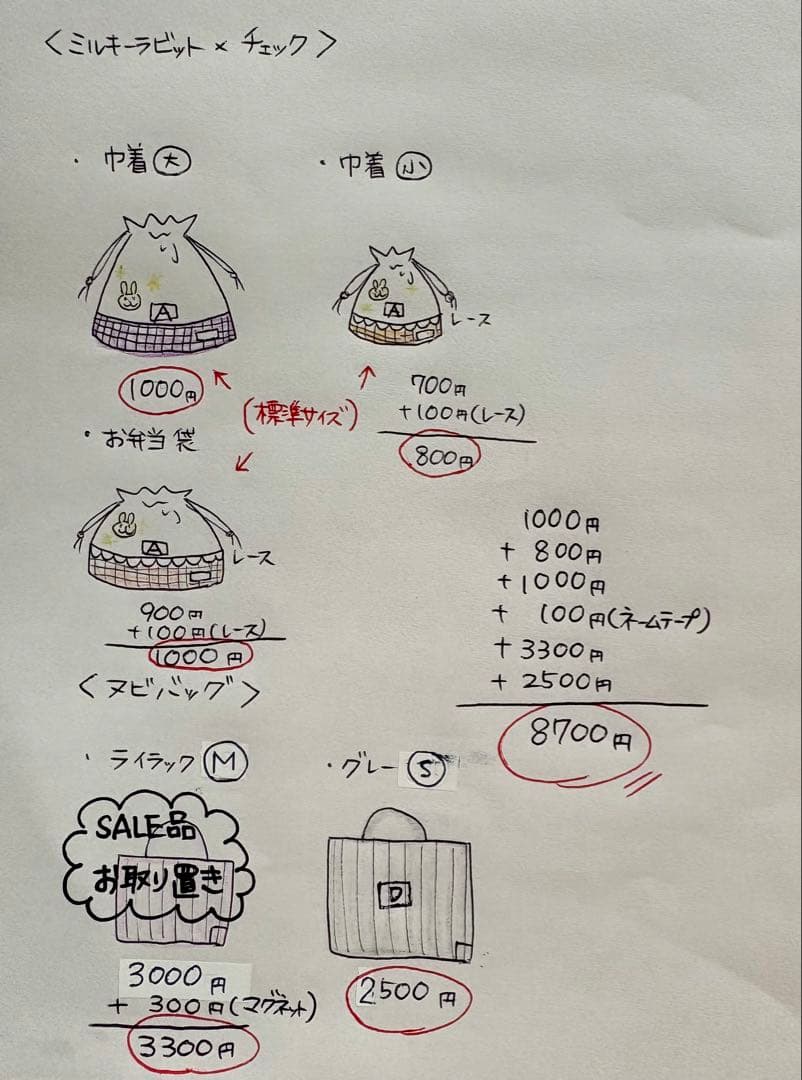 〈ミルキーラビット × チェック〉
・巾着 大
・巾着 小
A
A
レース
1000円
(標準サイズ)
700円
+100円(レース)
800円
・お弁当袋
A
レース
900円
+100円(レース)
1000円
1000円
+ 800円
+1000円
+ 100円(ネームテープ)
+3300円
+ 2500円
8700円
〈ヌビバッグ〉
・ライラック M
・グレー S
SALE品
お取り置き
D
3000円
+ 300円(マグネット)
3300円
2500円